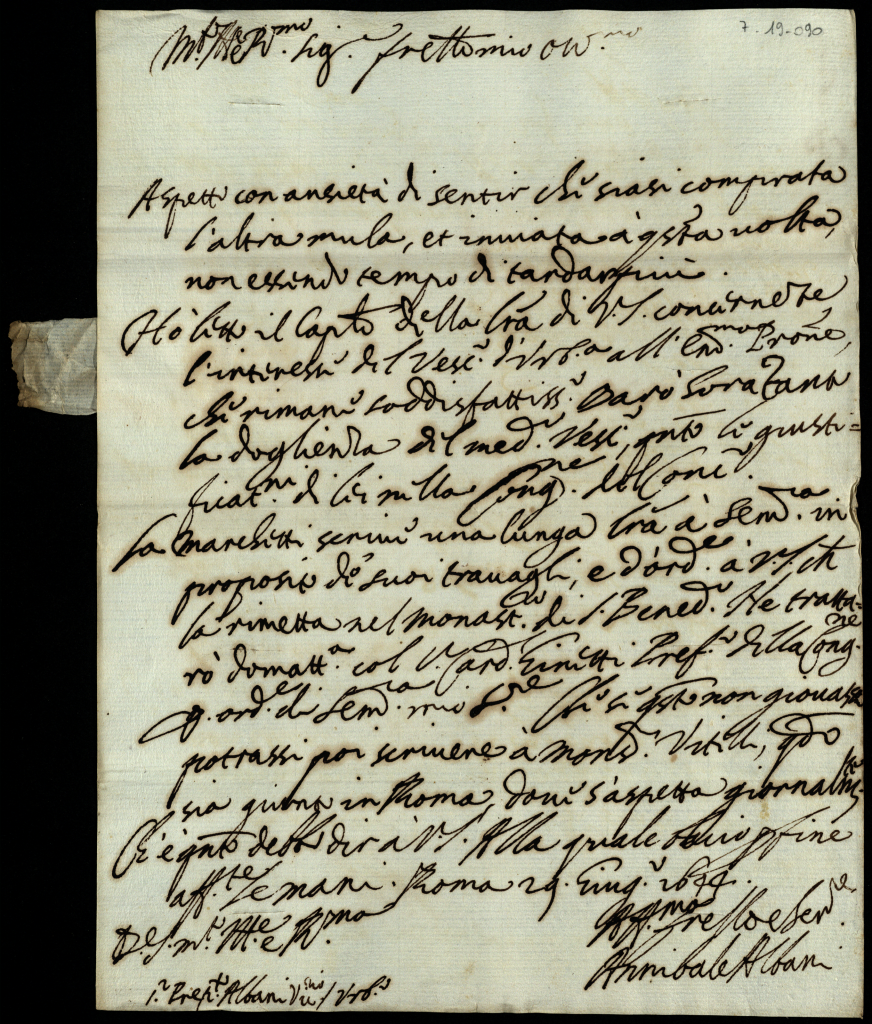 7-19-090
M.to Ill.e R.mo Sig.r fretto mio oss.mo
Aspetto con ansietà di sentir che siasi comprata
l'altra mula, et inviata à q.sta volta,
non essendo tempo di tardar più.
Hò letto il Capto della lra di V.S. concernete
l'interesse del Vesc.o d'Urb.o all' Em.mo P.rone,
che rimane soddisfattiss.o Darò
la doglienza del med.o Vesc.o, le giusti=
ficat.ni di lei nella Cong.ne del Conc.o
La Marchetti scrive una lunga lra à Sem.a in
proposito de' suoi travagli, e d'ord.e à V.S. ch
la rimetta nel monast.o di S. Bened.o Ne tratta=
rò domatt.a col S. Card. Ginetti Pref.o della Cong.ne
p. ord.e di Sem.a mio S.re Che se q.sto non giovasse
potrassi poi scrivere à Mons.r Vitelli, qdo
sia giunto in Roma, dove s'aspetta giornalmte
Ch'è qnto debbo dir à V.S. Alla quale bacio p fine
aff.te le mani. Roma 29. Giug.o 1644.
Di V.S. m.to Ill.e e R.ma
Aff.mo frello e Ser.re
Annibale Albani
S.r Pref.o Albani Vic.o / Urb.o